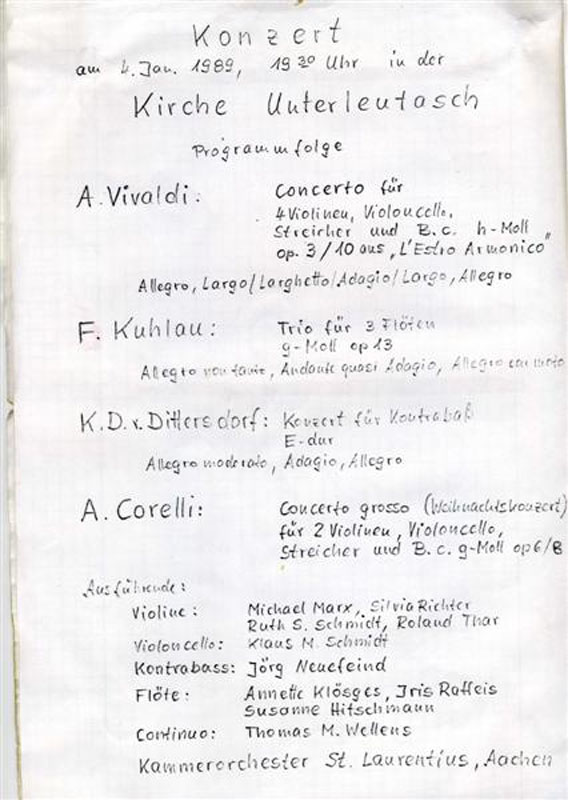 Konzert
am 4. Jan. 1989, 19 30 Uhr in der
Kirche Unterleutasch
Programmfolge
A. Vivaldi: Concerto für
4 Violinen, Violoncello,
Streicher und B.c. h-Moll
op. 3/10 aus „L'Estro Armonico"
Allegro, Largo/Larghetto/Adagio/Largo, Allegro
F. Kuhlau: Trio für 3 Flöten
g-Moll op 13
Allegro non tanto, Andante quasi Adagio, Allegro con moto
K.D.v. Dittersdorf: Konzert für Kontrabaß
E-dur
Allegro moderato, Adagio, Allegro
A. Corelli: Concerto grosso (Weihnachtskonzert)
für 2 Violinen, Violoncello,
Streicher und B.c. g-Moll op 6/8
Ausführende:
Violine: Michael Marx, Silvia Richter
Ruth S. Schmidt, Roland Thar
Violoncello: Klaus M. Schmidt
Kontrabass: Jörg Neuefeind
Flöte: Annette Klösges, Iris Raffeis
Susanne Hitschmann
Continuo: Thomas M. Wellens
Kammerorchester St. Laurentius, Aachen